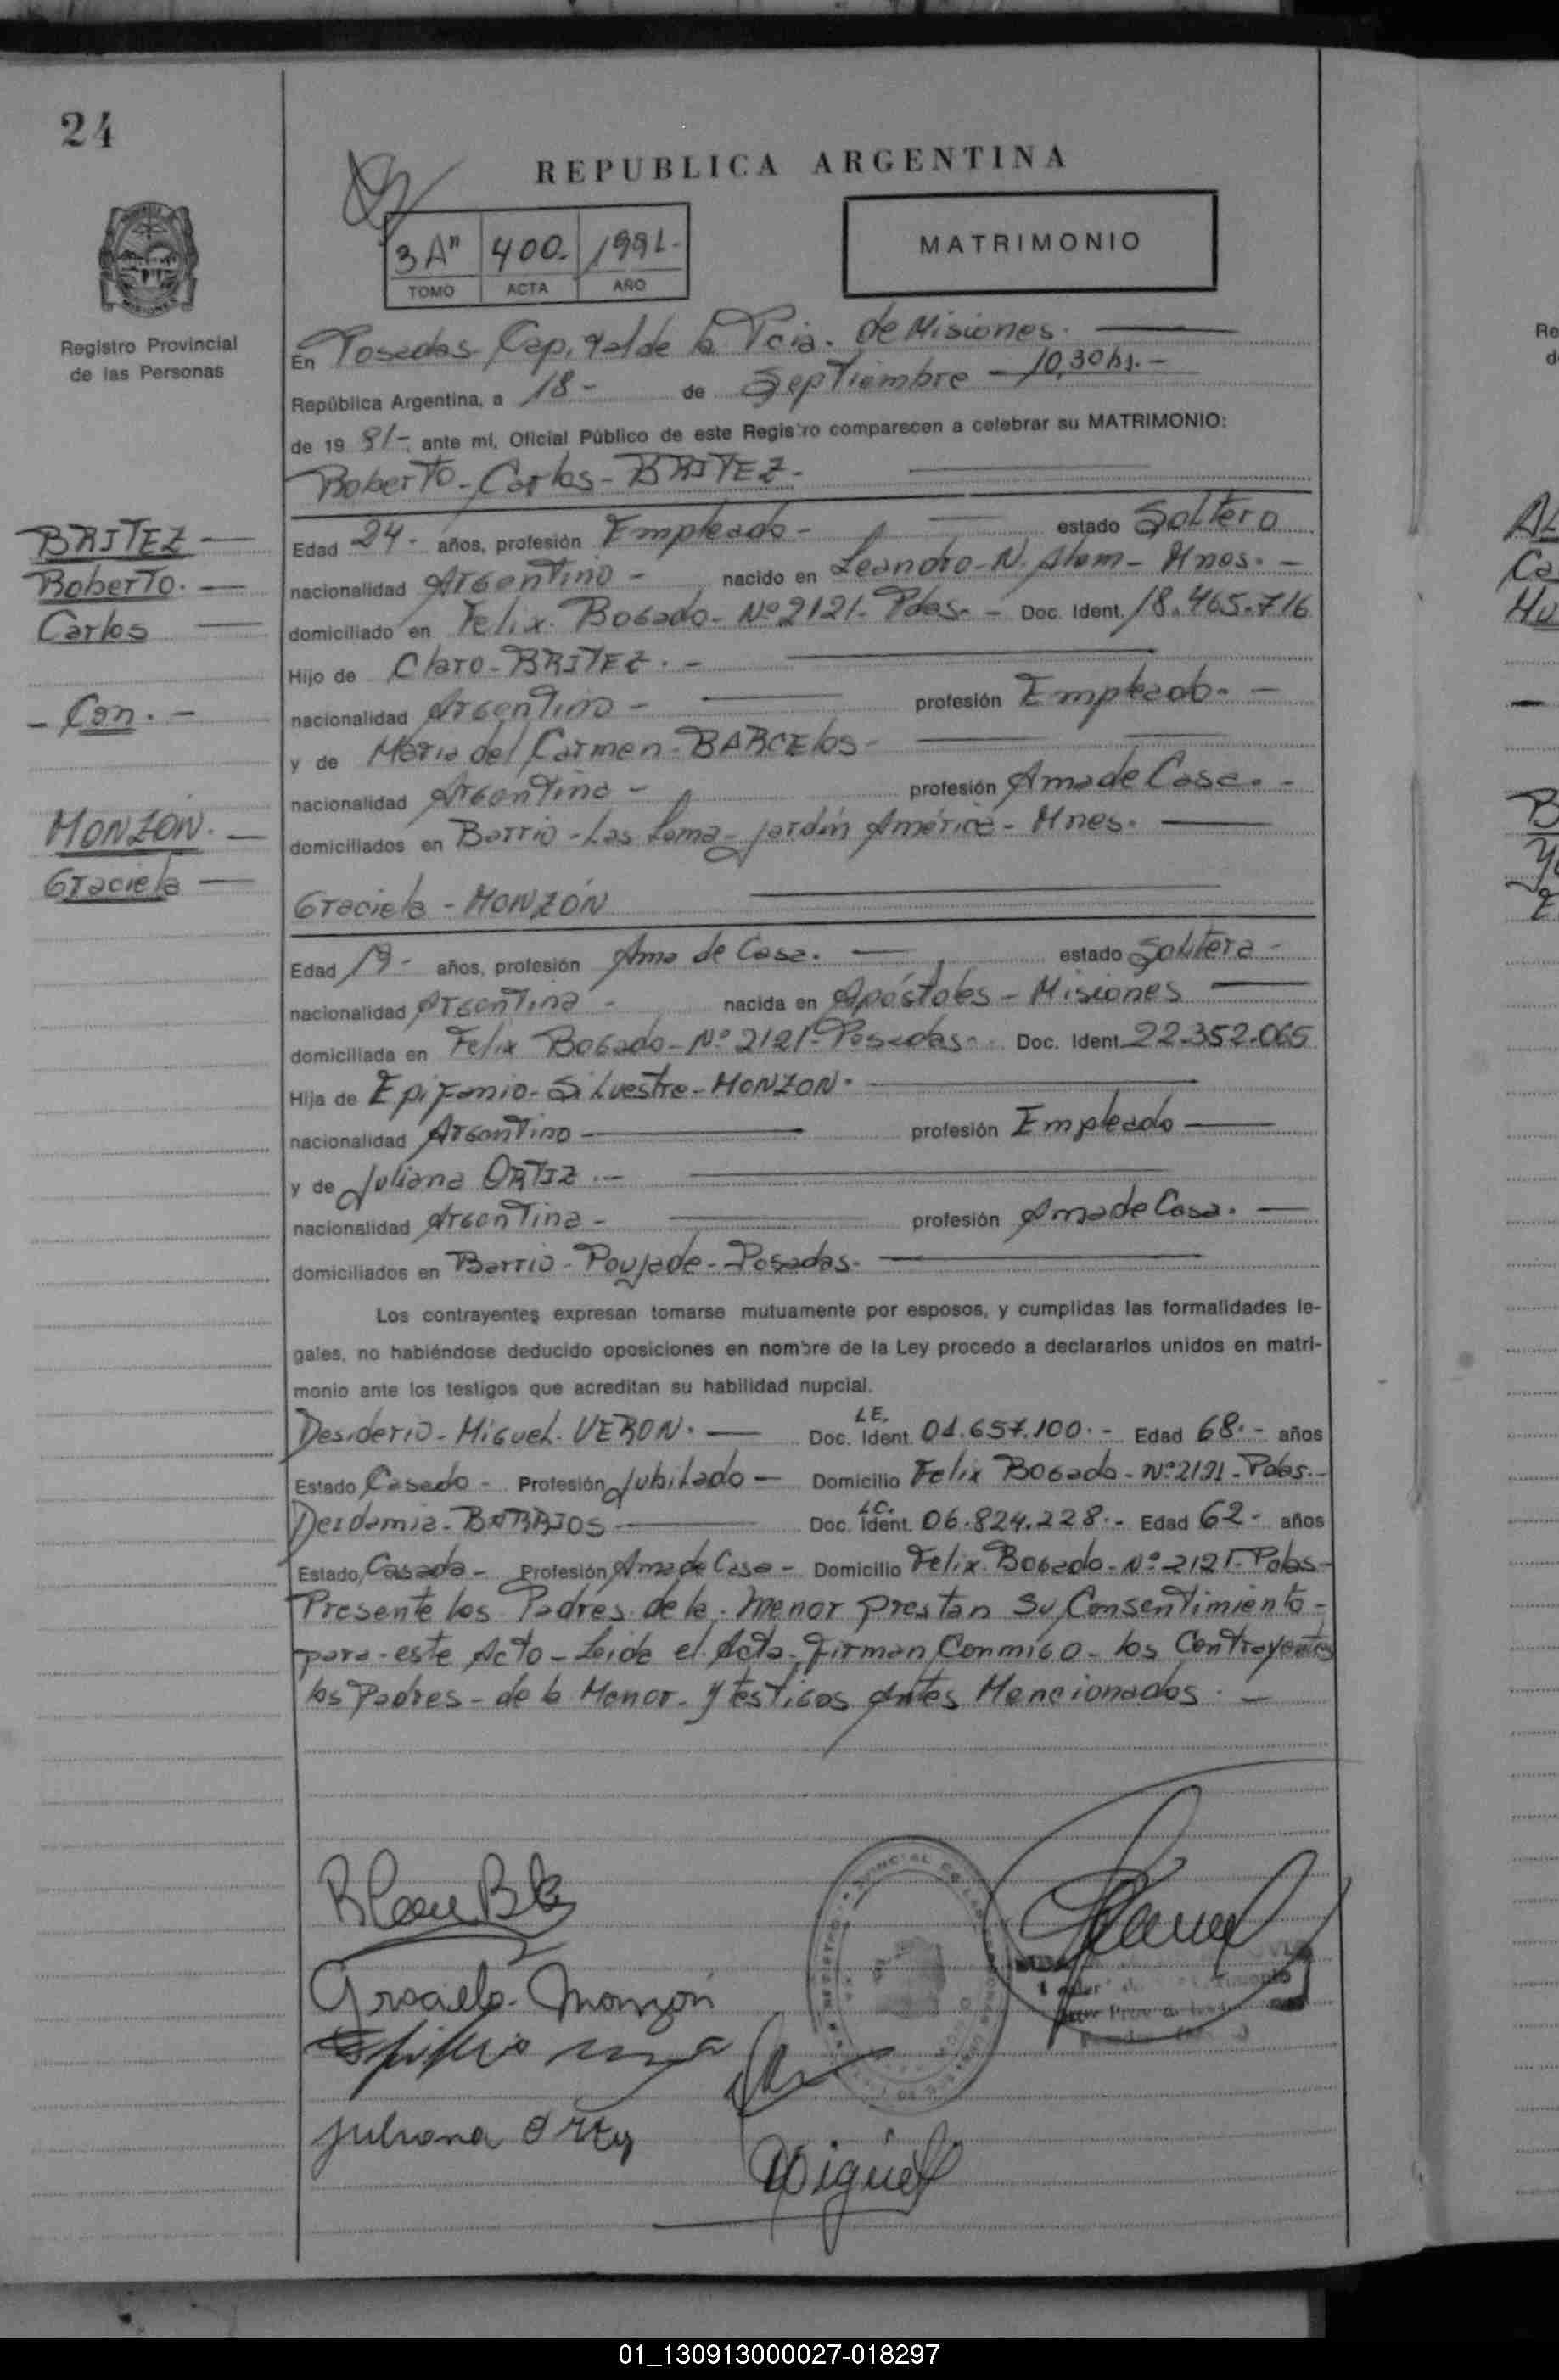 24
REPUBLICA ARGENTINA
3A" 400. 1991.
TOMO ACTA AÑO
MATRIMONIO
Registro Provincial
de las Personas
En Posadas Capital de la Pcia. de Misiones.
República Argentina, a 18 - de Septiembre - 10,30 hs. -
de 19 91 -, ante mí, Oficial Público de este Registro comparecen a celebrar su MATRIMONIO:
Roberto - Carlos - BRITEZ -
BRITEZ
Roberto.
Carlos
- Con. -
MONZÓN.
Graciela
Edad 24 - años, profesión Empleado - estado Soltero
nacionalidad Argentino - nacido en Leandro - N. Alem - Mnes. -
domiciliado en Felix Bogado - Nº 2121 - Pdas. - Doc. Ident. 18.465.716
Hijo de Claro - BRITEZ. -
nacionalidad Argentino - profesión Empleado. -
y de Maria del Carmen - BARCElos -
nacionalidad Argentina - profesión Ama de Casa. -
domiciliados en Barrio - Las Loma - jardín América - Mnes.
Graciela - MONZÓN
Edad 19 - años, profesión Ama de Casa. estado Soltera -
nacionalidad Argentina - nacida en Apóstoles - Misiones
domiciliada en Felix Bogado - Nº 2121 - Posadas - Doc. Ident. 22.352.065
Hija de Epifanio - Silvestre - MONZON.
nacionalidad Argentino profesión Empleado
y de Juliana ORTIZ. -
nacionalidad Argentina - profesión Ama de Casa.
domiciliados en Barrio - Poujade - Posadas -
Los contrayentes expresan tomarse mutuamente por esposos, y cumplidas las formalidades le-
gales, no habiéndose deducido oposiciones en nombre de la Ley procedo a declararlos unidos en matri-
monio ante los testigos que acreditan su habilidad nupcial.
Desiderio - Miguel - VERON. L.E. Doc. Ident. 01.657.100. - Edad 68. - años
Estado Casado - Profesión Jubilado - Domicilio Felix Bogado - Nº 2121 - Pdas. -
Deidamia - BARRIOS L.C. Doc. Ident. 06.824.228. - Edad 62 - años
Estado Casada - Profesión Ama de Casa - Domicilio Felix Bogado - Nº 2121 - Pdas -
Presente los Padres de la menor prestan Su Consentimiento -
para - este Acto - Leida el Acta - firman Conmigo - los Contrayentes
los Padres - de la Menor - y testigos antes Mencionados. -
Graciela Monzón
juliana Ortiz
Miguel
01_130913000027-018297